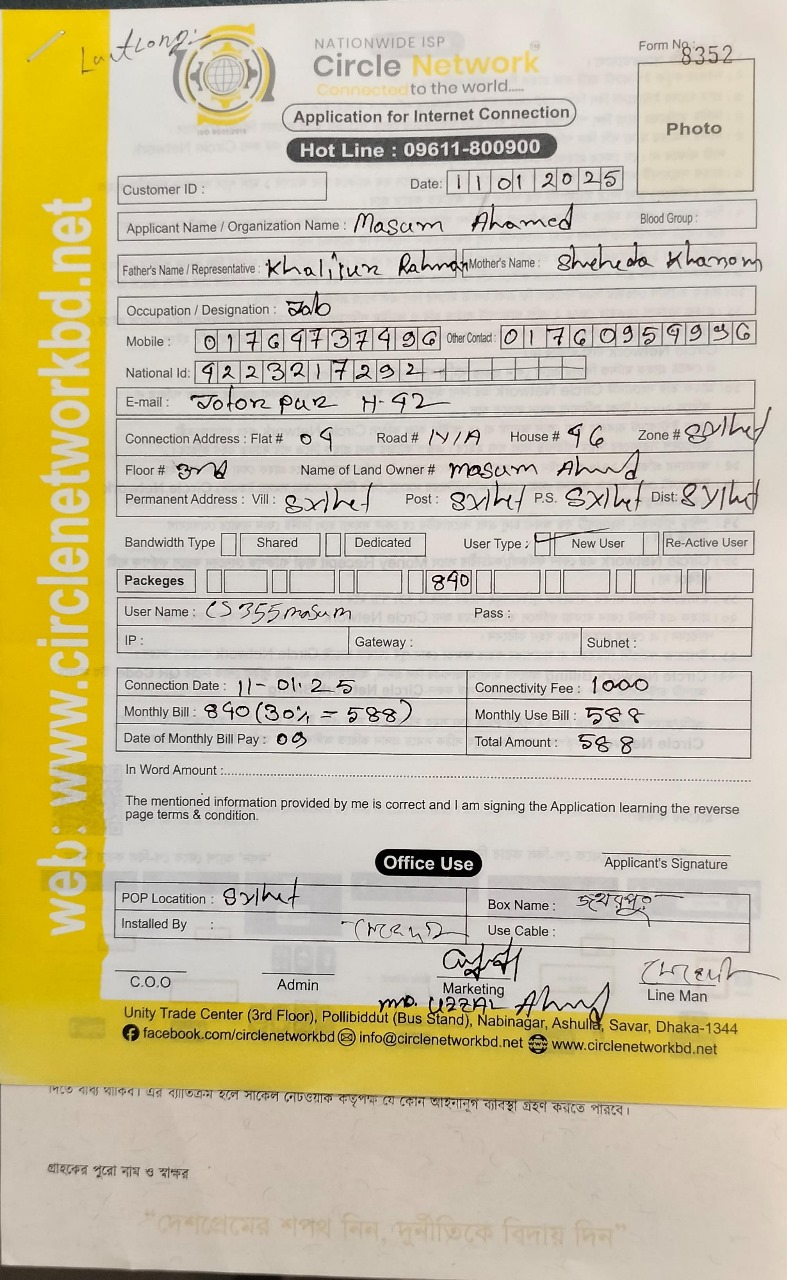 Lat Long:
NATIONWIDE ISP
Circle Network
Connected to the world.....
Form No : 8352
Application for Internet Connection
Hot Line : 09611-800900
Photo
Customer ID :
Date: 11 01 2025
Applicant Name / Organization Name : Masum Ahamed Blood Group :
Father's Name / Representative : Khalilur Rahman Mother's Name : Sheheda Khanom
Occupation / Designation : Job
Mobile : 01764737496 Other Contact : 01760959936
National Id: 4223217292
E-mail : Jotorpur H-42
Connection Address : Flat # 04 Road # N/A House # 46 Zone # Sylhet
Floor # 3rd Name of Land Owner # Masum Ahmd
Permanent Address : Vill : Sylhet Post : Sylhet P.S. Sylhet Dist: Sylhet
Bandwidth Type Shared Dedicated User Type : New User Re-Active User
Packeges 840
User Name : CS355masum Pass :
IP : Gateway : Subnet :
Connection Date : 11-01.25 Connectivity Fee : 1000
Monthly Bill : 840 (30% = 588) Monthly Use Bill : 588
Date of Monthly Bill Pay : 09 Total Amount : 588
In Word Amount :
The mentioned information provided by me is correct and I am signing the Application learning the reverse
page terms & condition.
Office Use
Applicant's Signature
POP Locatition : Sylhet Box Name :
Installed By : Use Cable :
C.O.O Admin Marketing Line Man
MD. UZZAL Ahmd
Unity Trade Center (3rd Floor), Pollibiddut (Bus Stand), Nabinagar, Ashulla, Savar, Dhaka-1344
facebook.com/circlenetworkbd info@circlenetworkbd.net www.circlenetworkbd.net
web : www.circlenetworkbd.net
দিতে বাধ্য থাকিব। এর ব্যতিক্রম হলে সার্কেল নেটওয়ার্ক কতৃপক্ষ যে কোন আইনানুগ ব্যবস্থা গ্রহণ করতে পারবে।
গ্রাহকের পুরো নাম ও স্বাক্ষর
“দেশপ্রেমের শপথ নিন, দুর্নীতিকে বিদায় দিন”